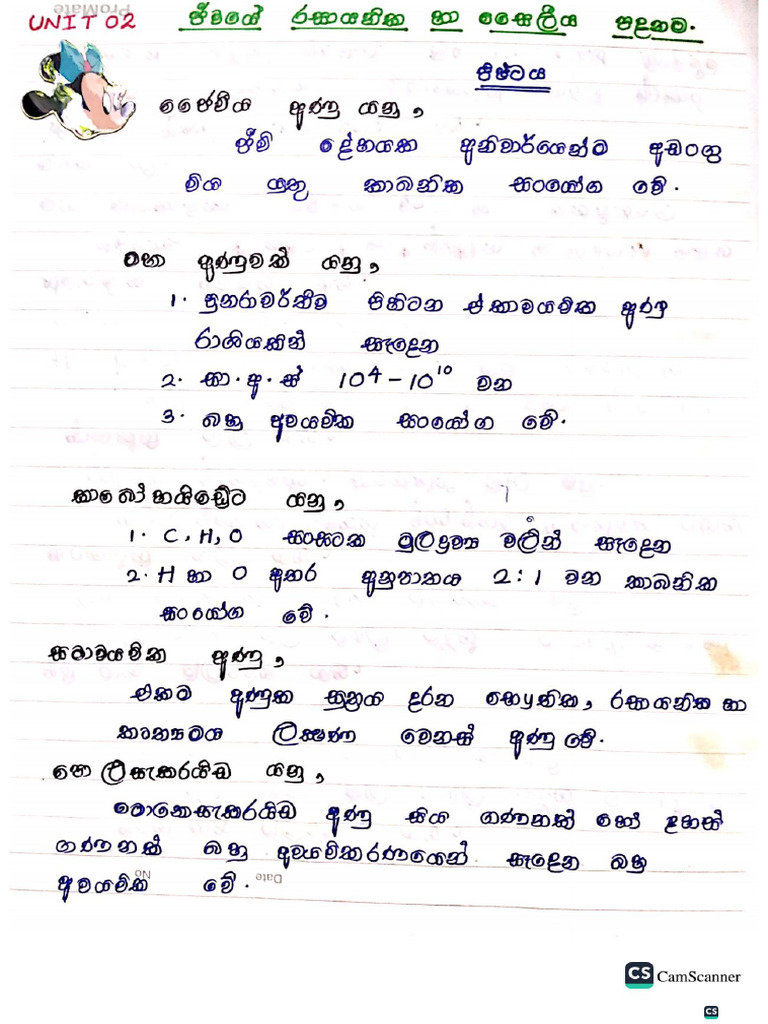 ProMate
UNIT 02 ජීවයේ රසායනික හා සෛලීය පදනම.
පිෂ්ටය
ජෛවීය අණු යනු,
ජීවී දේහයක අනිවාර්යෙන්ම අඩංගු
විය යුතු කාබනික සංයෝග වේ.
මහා අණුවක් යනු,
1. පුනරාවර්තීව පිහිටන ඒකාවයවික අණු
රාශියකින් සෑදෙන
2. සා.අ.ස් 10⁴-10¹⁰ වන
3. බහු අවයවික සංයෝග වේ.
කාබෝහයිඩ්‍රේට යනු,
1. C,H,O සංඝටක මූලද්‍රව්‍ය වලින් සෑදෙන
2. H හා O අතර අනුපාතය 2:1 වන කාබනික
සංයෝග වේ.
සමාවයවික අණු,
එකම අණුක සූත්‍රය දරන භෞතික, රසායනික හා
කෘත්‍යමය ලක්ෂණ වෙනස් අණු වේ.
පොලිසැකරයිඩ යනු,
මොනොසැකරයිඩ අණු සිය ගණනක් හෝ දහස්
ගණනක් බහු අවයවිකරණයෙන් සෑදෙන බහු
අවයවික වේ.
Date No
CS CamScanner
CS